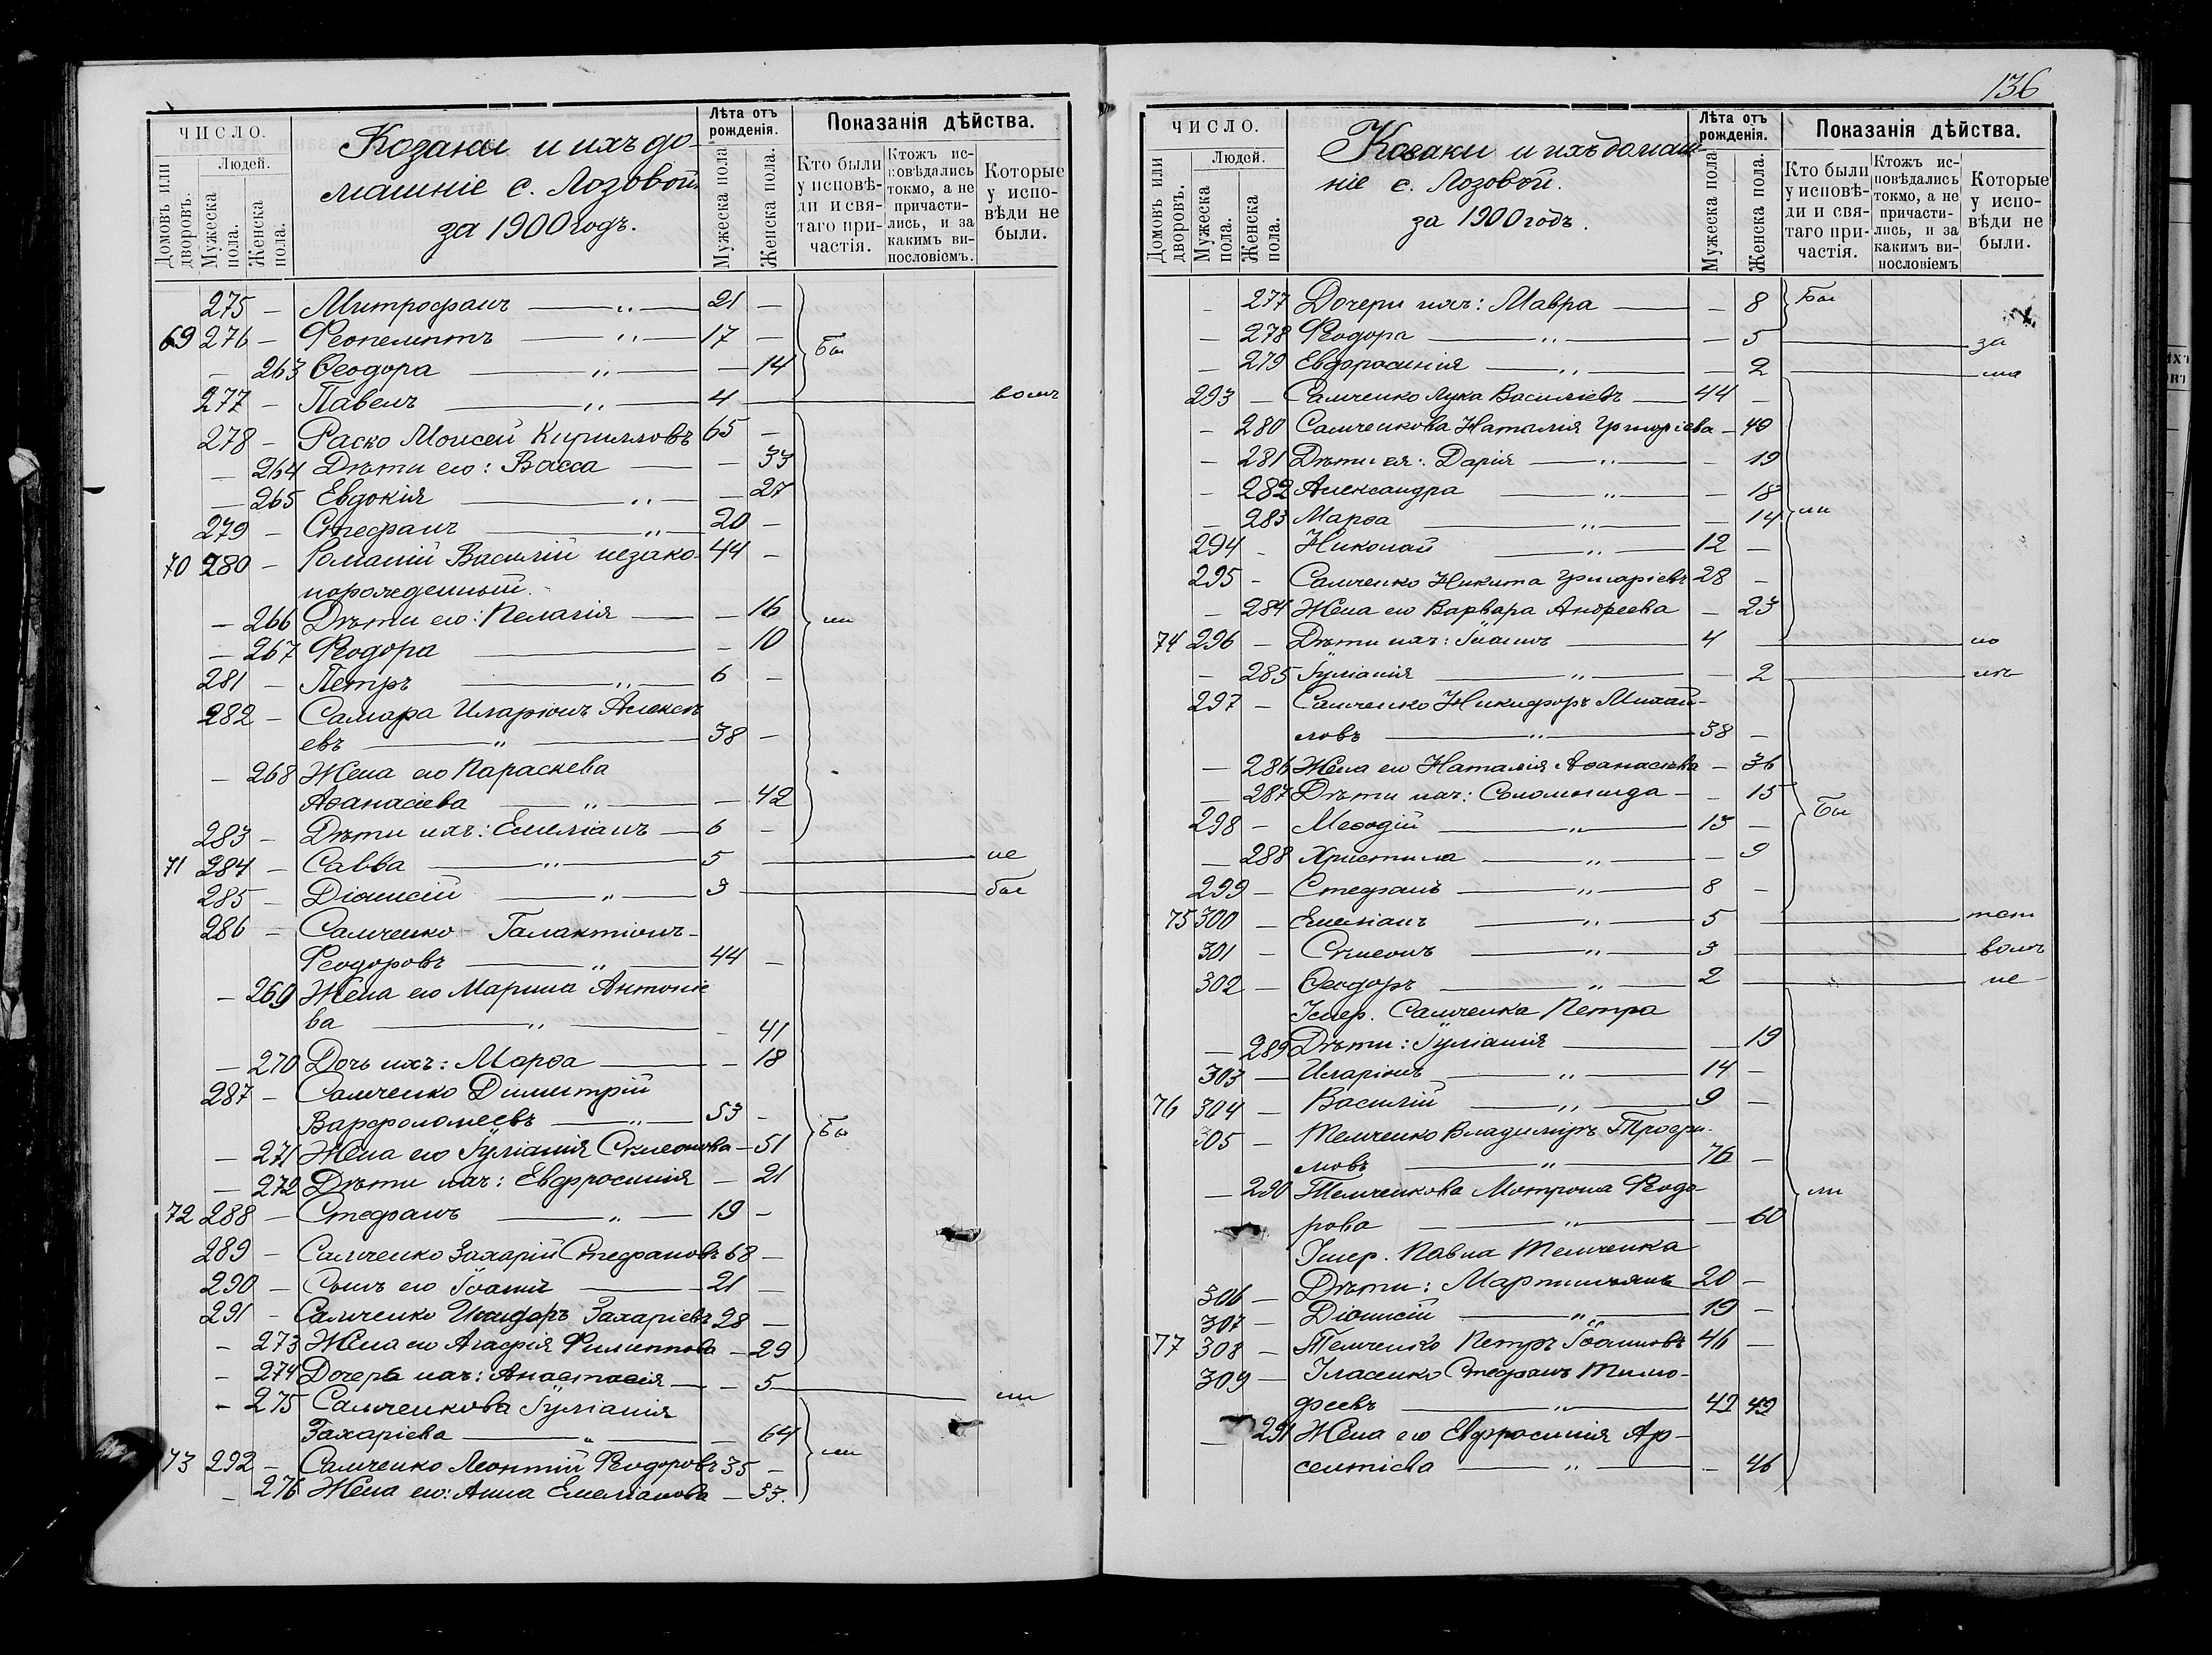 ЧИСЛО.
Домовъ или дворовъ.
Людей.
Мужеска пола.
Женска пола.
Козаки и ихъ до-
машніе с. Лозовой
за 1900 годъ.
Лѣта отъ рожденія.
Мужеска пола
Женска пола.
Показанія дѣйства.
Кто были у исповѣ-ди и свя-таго при-частія.
Ктожъ ис-повѣдались токмо, а не причасти-лись, и за какимъ ви-нословіемъ.
Которые у испо-вѣди не были.
275 – Митрофанъ — „ — 21 –
69 276 – Феопемптъ — „ — 17 –
– 263 Ѳеодора — „ — – 14 Бы
277 – Павелъ — „ — 4 — вомъ
278 – Раско Моисей Кирилловъ 65 –
– 264 Дѣти его: Васса — – 33
– 265 Евдокія — „ — – 27
279 – Стефанъ — „ — 20 –
70 280 – Романій Василій незако- 44 –
норожденный.
– 266 Дѣти его: Пелагія — – 16 ли
– 267 Феодора — – 10
281 – Петръ — „ — 6 –
282 – Самара Иларіонъ Алексѣ
евъ — „ — 38 –
– 268 Жена его Параскева
Аѳанасіева — „ — – 42
283 – Дѣти ихъ: Емеліанъ — 6 –
71 284 – Савва — „ — 5 — не
285 – Діонисій — „ — 3 — бы
286 – Самченко Галактіонъ-
Феодоровъ — „ — 44 –
– 269 Жена его Марина Антоніе
ва — „ — – 41
– 270 Дочь ихъ: Марѳа — – 18
287 – Самченко Димитрій
Варфоломеевъ — „ — 53 –
– 271 Жена его Іуліанія Симеонова – 51 Бы
– 272 Дѣти ихъ: Евфросинія – 21
72 288 – Стефанъ — „ — 19 –
289 – Самченко Захарій Стефановъ 68 –
290 – Сынъ его Іоаннъ — 21 –
291 – Самченко Исидоръ Захаріевъ 28 –
– 273 Жена его Агафія Филиппова – 29
– 274 Дочерь ихъ: Анастасія — – 5 — ли
– 275 Самченкова Іуліанія
Захаріева — „ — – 64
73 292 – Самченко Леонтій Феодоровъ 35 – ли
– 276 Жена его: Анна Емеліанова – 33.
136
ЧИСЛО.
Домовъ или дворовъ.
Людей.
Мужеска пола.
Женска пола.
Козаки и ихъ домаш-
ніе с. Лозовой.
за 1900 годъ.
Лѣта отъ рожденія.
Мужеска пола
Женска пола.
Показанія дѣйства.
Кто были у исповѣ-ди и свя-таго при-частія.
Ктожъ ис-повѣдались токмо, а не причасти-лись, и за какимъ ви-нословіемъ
Которые у испо-вѣди не были.
– 277 Дочери ихъ: Мавра — – 8 Бы
– 278 Феодора — „ — – 5 — за
– 279 Евфросинія — „ — – 2 — ма
293 – Самченко Лука Василіевъ — 44 –
– 280 Самченкова Наталія Григоріева – 40
– 281 Дѣти ея: Дарія — „ — – 19
– 282 Александра — „ — – 18
– 283 Марѳа — „ — – 14 ли
294 – Николай — „ — 12 –
295 – Самченко Никита Григоріевъ 28 –
– 284 Жена его Варвара Андреева – 23
74 296 – Дѣти ихъ: Іоаннъ — 4 — ло
– 285 Іуліанія — „ — – 2 — лѣ
297 – Самченко Никифоръ Михай-
ловъ — „ — 38 –
– 286 Жена его Наталія Аѳанасьева – 36
– 287 Дѣти ихъ: Соломонида – – 15
298 – Меѳодій — „ — 13 – Бы
– 288 Христина — „ — – 9
299 – Стефанъ — „ — 8 –
75 300 – Емеліанъ — „ — 5 —
301 – Симеонъ — „ — 3 — вомъ
302 – Ѳеодоръ — „ — 2 — не –
Умер. Самченка Петра
– 289 Дѣти: Іуліанія — – 19
303 – Иларіонъ — „ — 14 –
76 304 – Василій — „ — 9 –
305 – Темченко Владиміръ Трофи-
мовъ — „ — 76 –
– 290 Темченкова Мотрона Феодо- ли
рова — „ — – 60
Умер. Павла Темченка
306 – Дѣти: Мартиніанъ 20 –
307 – Діонисій — „ — 19 –
77 308 – Темченко Петръ Іоанновъ 46 –
309 – Стефанъ Тимо-
феевъ — „ — 49 49
– 291 Жена его Евфросинія Ар-
сентіева — „ — – 46